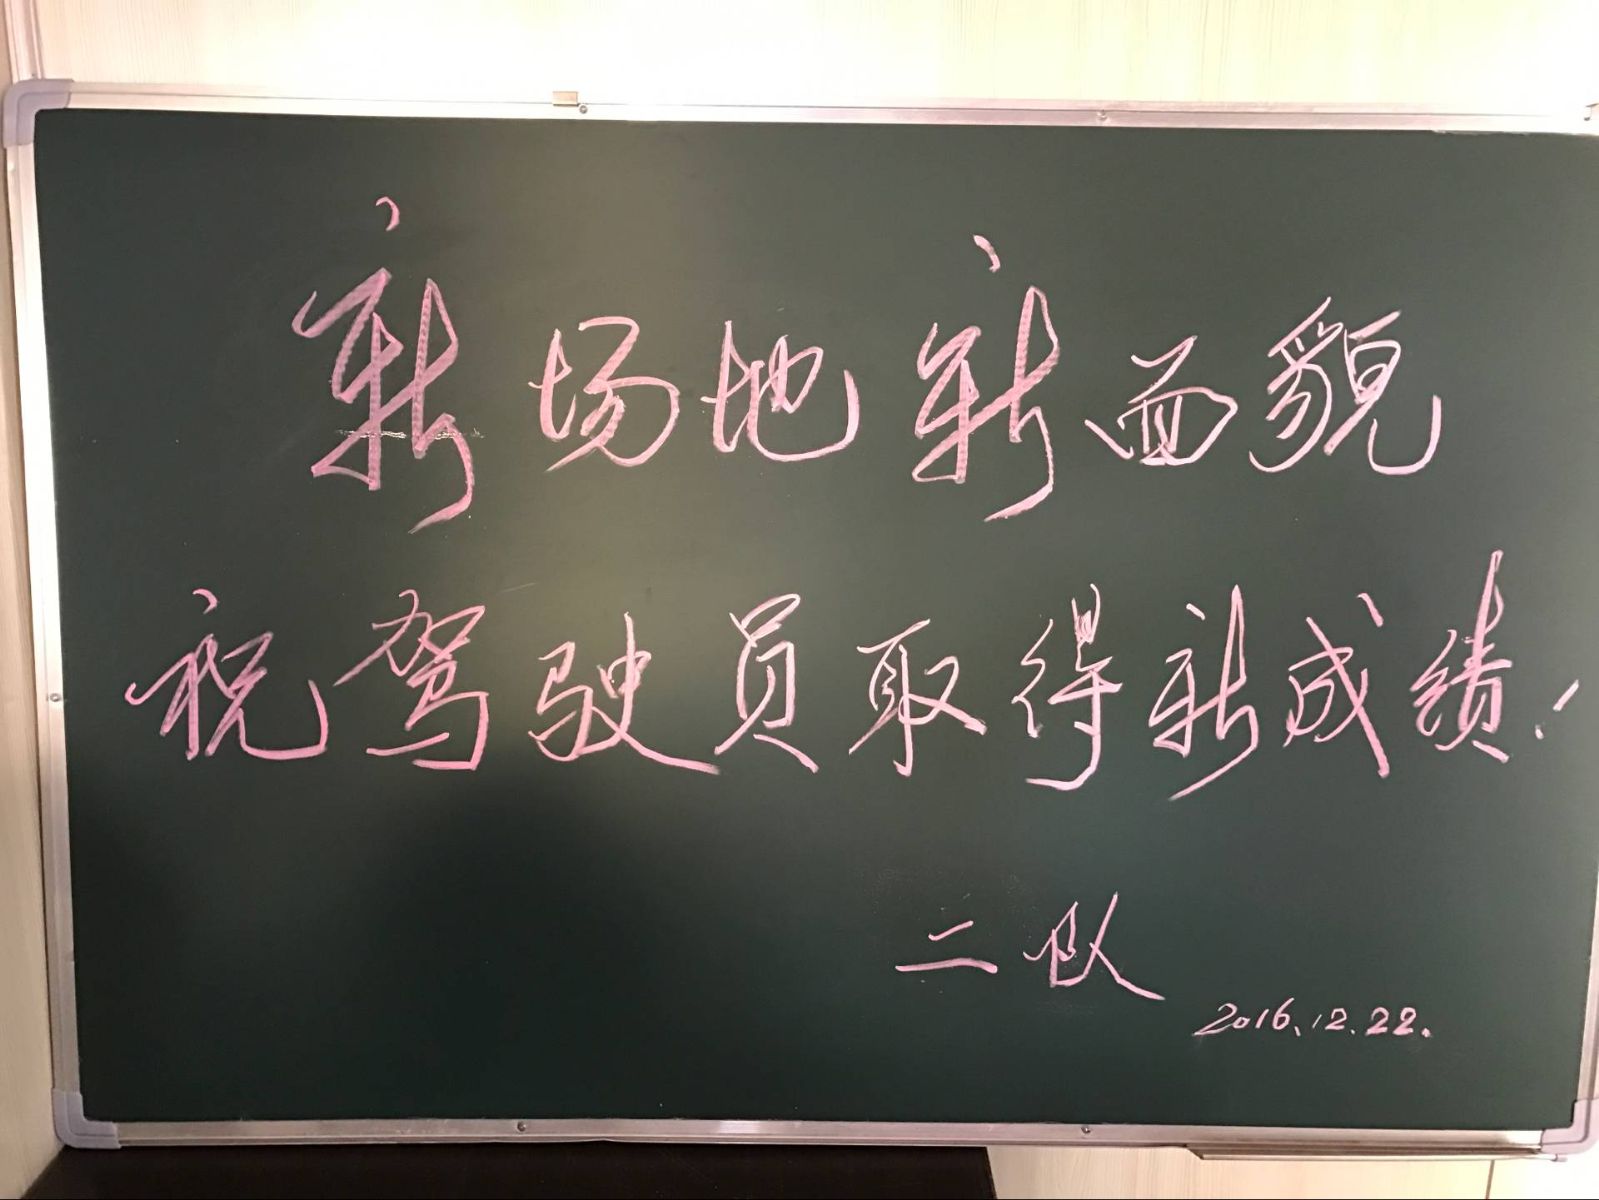 新场地新面貌
祝驾驶员取得新成绩!
二队
2016.12.22.